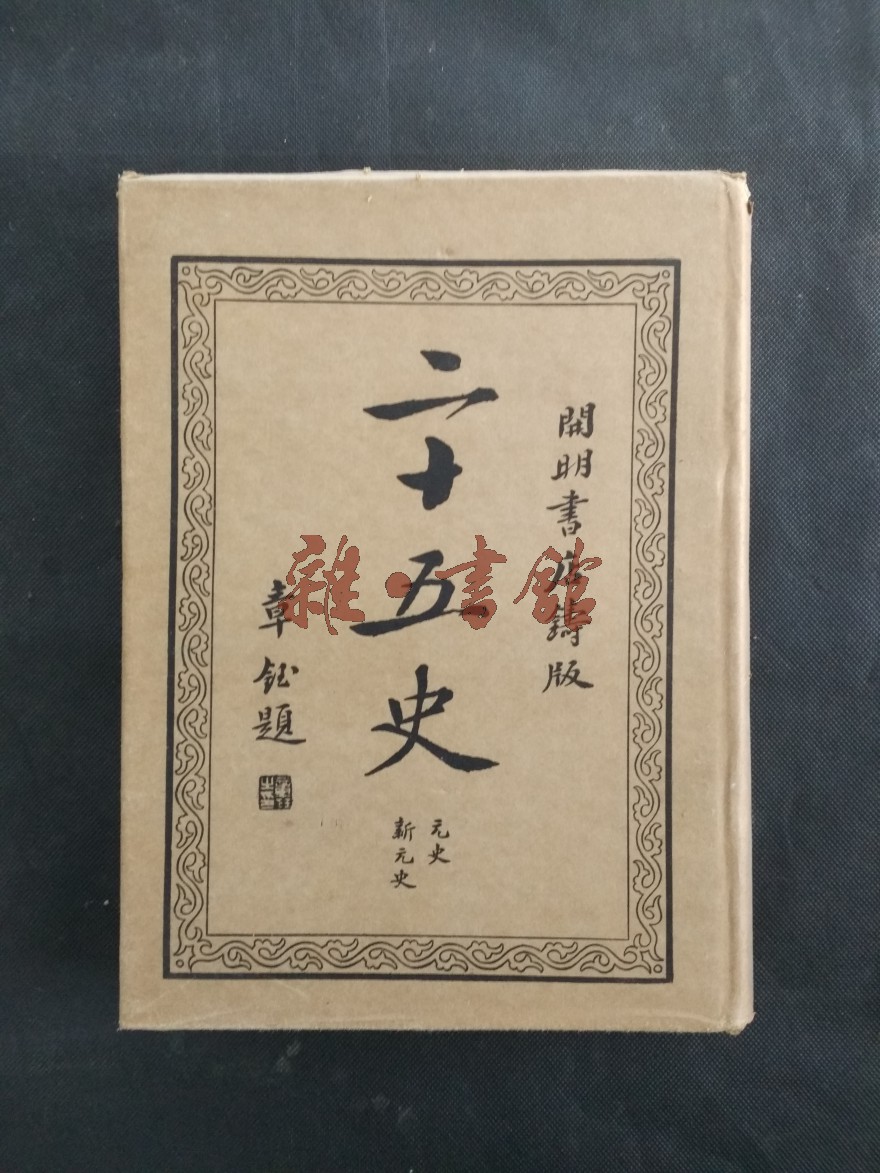 開明書店鑄版
二十五史
元史
新元史
章鈺題
雜·書館